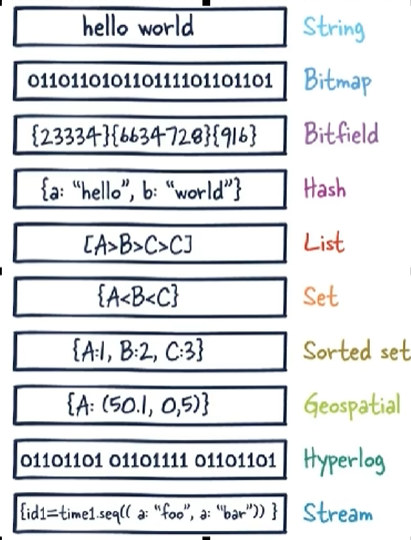 hello world String
011011010110111101101101 Bitmap
{23334}{6634728}{916} Bitfield
{a: "hello", b: "world"} Hash
[A>B>C>C] List
{A<B<C} Set
{A:1, B:2, C:3} Sorted set
{A: (50.1, 0,5)} Geospatial
01101101 01101111 01101101 Hyperlog
{id1=time1.seq(( a: "foo", a: "bar")) } Stream